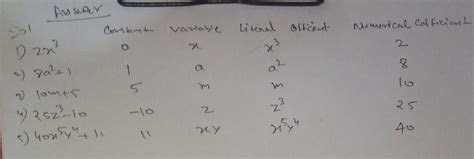 Answer
Sol Constant Variable Literal Officent Numerical Cofficient
1) 2x³ 0 x x³ 2
2) 8a²+1 1 a a² 8
3) 10m+5 5 m m 10
4) 25z³-10 -10 z z³ 25
5) 40x⁵y⁴+11 11 xy x⁵y⁴ 40